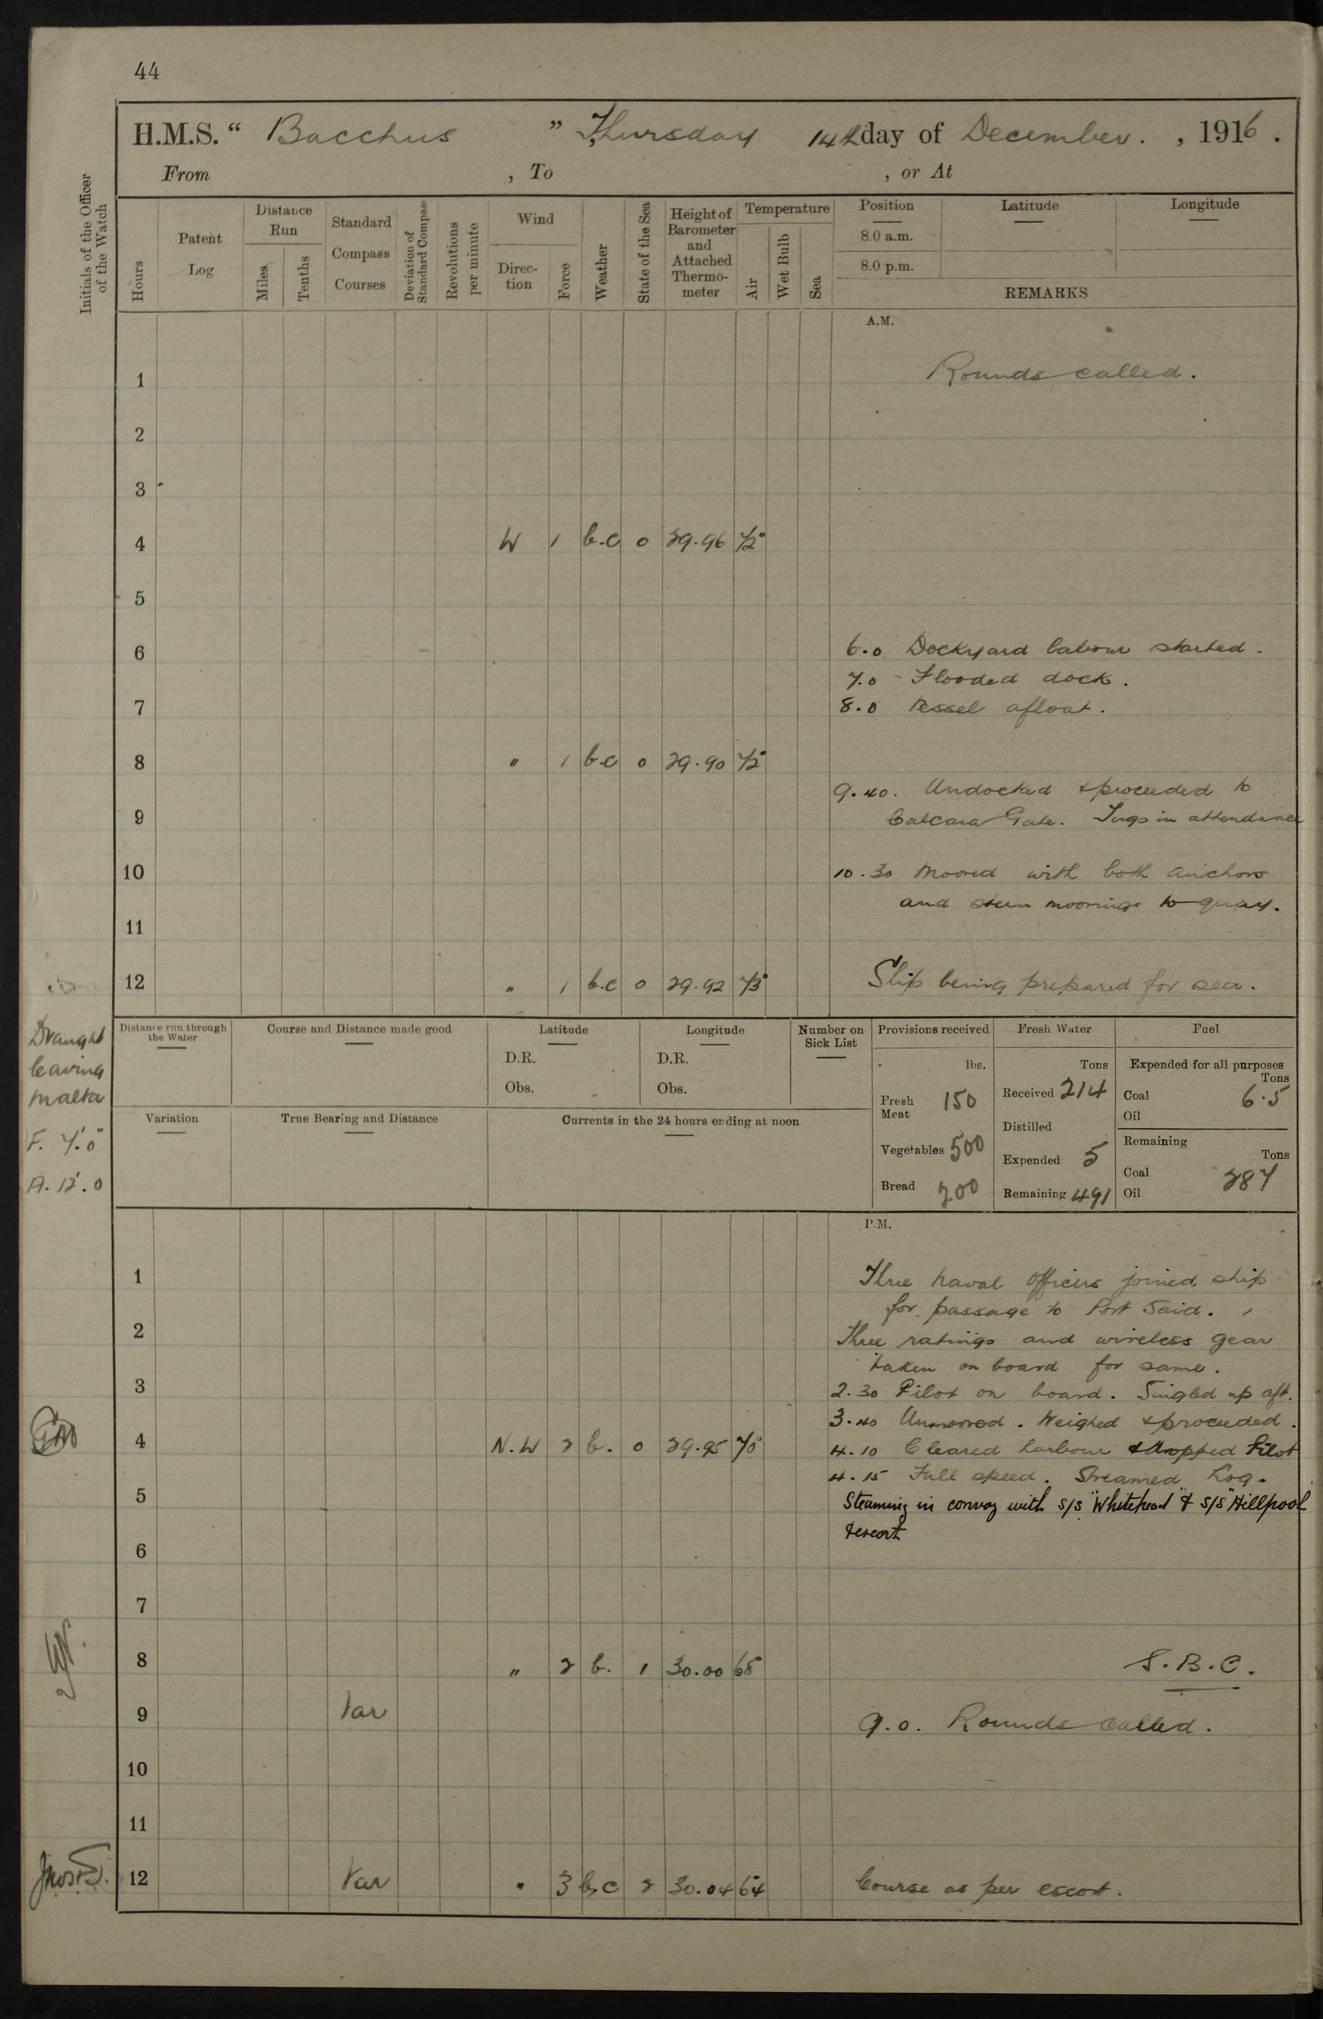 44
H.M.S. “ Bacchus ” Thursday 14th day of December. , 1916.
From , To , or At
Initials of the Officer of the Watch
Hours
Patent Log
Distance Run
Miles
Tenths
Standard Compass Courses
Deviation of Standard Compass
Revolutions per minute
Wind
Direction
Force
Weather
State of the Sea
Height of Barometer and Attached Thermometer
Temperature
Air
Wet Bulb
Sea
Position
8.0 a.m.
8.0 p.m.
Latitude
Longitude
REMARKS
A.M.
1 Rounds called.
2
3
4 W 1 b.c 0 29.96 72°
5
6 6.0 Dockyard labour started.
7.0 - Flooded dock.
7 8.0 Vessel afloat.
8 " 1 b.c 0 29.90 72°
9.40. Undocked & proceeded to
9 Calcara Gate. Tugs in attendance
10 10.30 Moored with both anchors
and stern moorings to quay.
11
12 " 1 b.c 0 29.92 73° Ship being prepared for sea.
Draught
leaving
Malta
F. 7'.0"
A. 12'.0
Distance run through the Water
Course and Distance made good
Latitude
D.R.
Obs.
Longitude
D.R.
Obs.
Number on Sick List
Variation
True Bearing and Distance
Currents in the 24 hours ending at noon
Provisions received
lbs.
Fresh Meat 150
Vegetables 500
Bread 200
Fresh Water
Tons
Received 214
Distilled
Expended 5
Remaining 491
Fuel
Expended for all purposes
Tons
Coal 6.5
Oil
Remaining
Tons
Coal 287
Oil
P.M.
1 Three naval officers joined ship
for passage to Port Said.
2 Three ratings and wireless gear
taken on board for same.
3 2.30 Pilot on board. Singled up aft.
3.40 Unmoored. Weighed & proceeded.
4 N.W 2 b. 0 29.95 70° 4.10 Cleared harbour & dropped Pilot
4.15 Full speed. Streamed Log.
5 Steaming in convoy with S/S "Whitehead" & S/S "Hillpool"
& escort
6
7
8 " 2 b. 1 30.00 68 S.B.C.
9 Var 9.0. Rounds called.
10
11
12 Var " 3 b.c 2 30.04 64° Course as per escort.